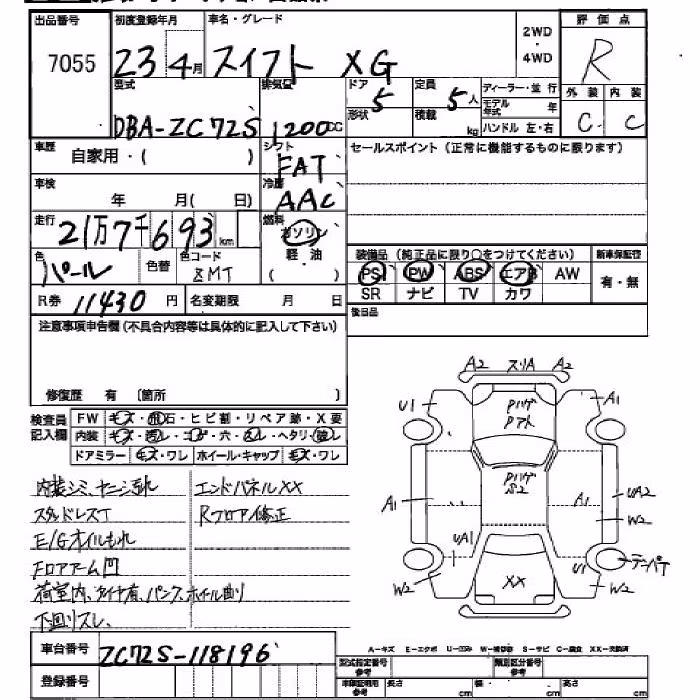 出品番号 初度登録年月 車名・グレード 2WD・4WD 評価点
7055 23 4月 スイフト XG R
型式 排気量 ドア 5 定員 5人 ディーラー・並行 外装 内装
DBA-ZC72S 1200cc 形状 積載 kg モデル年式 年 ハンドル 左・右 C C
車歴 自家用・( ) シフト FAT セールスポイント(正常に機能するものに限ります)
車検 年 月( 日) 冷房 AAC
走行 21万7千693km 燃料 ガソリン 軽・油 ( )
色 パール 色替 色コード ZMT
装備品 (純正品に限り○をつけてください) 新車保証書
PS PW ABS エアB AW 有・無
SR ナビ TV カワ
R券 11430円 名変期限 月 日 後日品
注意事項申告欄(不具合内容等は具体的に記入して下さい)
修復歴 有 〔箇所 〕
検査員記入欄 FW キズ・飛石・ヒビ割・リペア跡・X要
内装 キズ・汚レ・コゲ・穴・スレ・ヘタリ・
ドアミラー キズ・ワレ ホイール・キャップ キズ・ワレ
内装シミ、ヤニ汚れ エンドパネルXX
スタッドレスT Rフロア修正
E/Gオイルもれ
Fロアアーム凹
荷室内、タイヤ有、パンク、ホイール曲り
下回りスレ、
A2 スリA A2
U1 PハゲPアト A1
A1 Pハゲ S2 A1 UA2
W2
UA1 U1 テンパT
W2 XX W2
車台番号 ZC72S-118196
登録番号
A-キズ E-エクボ U-凹み W-補修跡 S-サビ C-腐食 XX-交換済
型式指定番号 参考 類別区分番号 参考
車庫証明用 参考 長さ cm 幅 cm 高さ cm